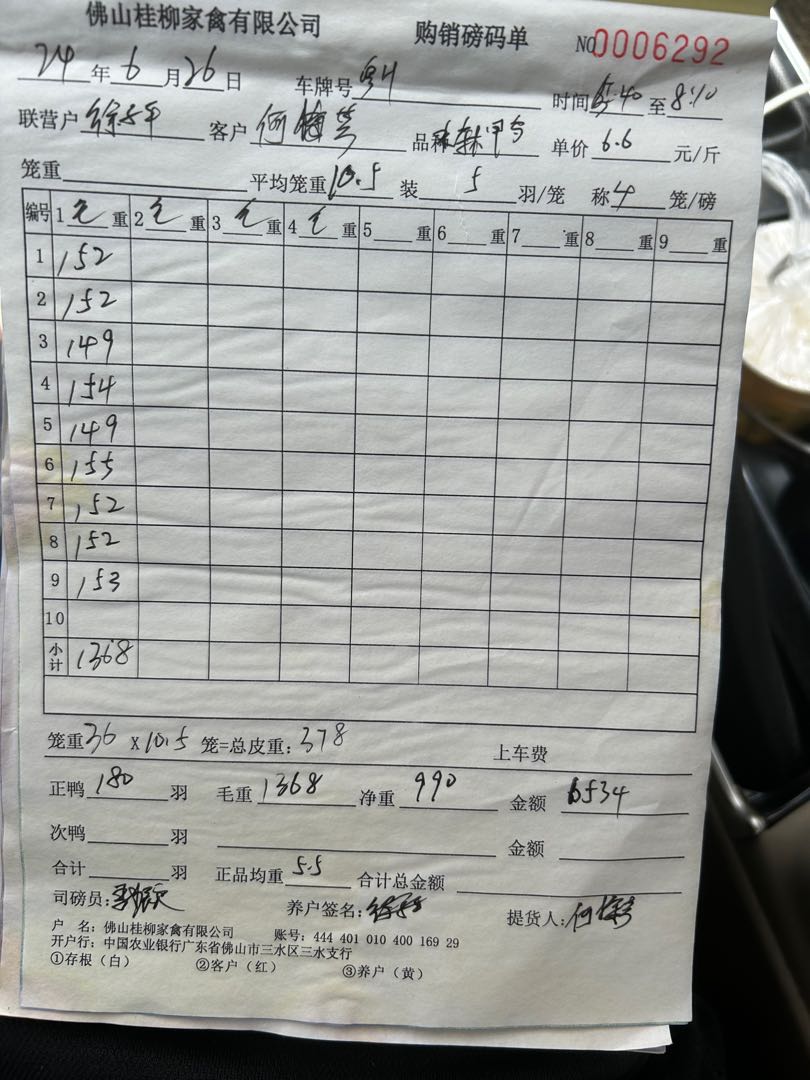 佛山桂柳家禽有限公司 购销磅码单 NO 0006292
24 年 6 月 26 日 车牌号 时间 5:40 至 8:10
联营户 客户 何梅芳 品种 单价 6.6 元/斤
笼重 平均笼重 10.5 装 5 羽/笼 称 4 笼/磅
编号 1 毛 重 2 毛 重 3 毛 重 4 毛 重 5 重 6 重 7 重 8 重 9 重
1 152
2 152
3 149
4 154
5 149
6 155
7 152
8 152
9 153
10
小计 1368
笼重 36 x 10.5 笼=总皮重: 378 上车费
正鸭 180 羽 毛重 1368 净重 990 金额 6534
次鸭 羽 金额
合计 羽 正品均重 5.5 合计总金额
司磅员: 养户签名: 提货人:
户 名: 佛山桂柳家禽有限公司 账号: 444 401 010 400 169 29
开户行: 中国农业银行广东省佛山市三水区三水支行
①存根（白） ②客户（红） ③养户（黄）